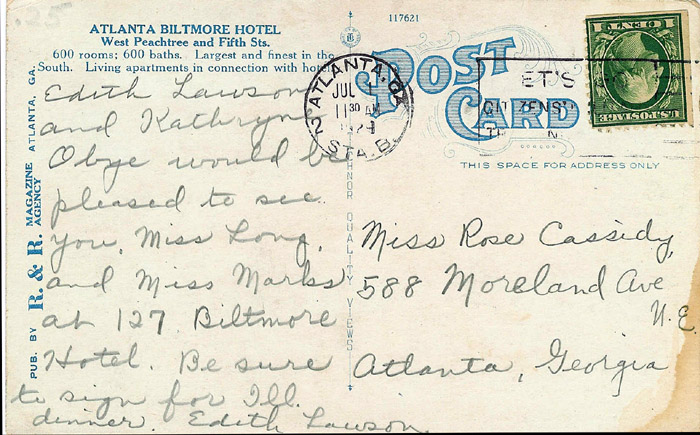 .25
117621
ATLANTA BILTMORE HOTEL
West Peachtree and Fifth Sts.
600 rooms; 600 baths. Largest and finest in the
South. Living apartments in connection with hotel
POST
CARD
THIS SPACE FOR ADDRESS ONLY
ATLANTA, GA.
JUL 1
11 30 AM
STA. B.
2
ET'S
CITIZENS'
1 CENT 1
U.S. POSTAGE
PUB. BY R. & R. MAGAZINE AGENCY ATLANTA, GA.
TECHNOR QUALITY VIEWS
Edith Lawson
and Kathryn
Obye would be
pleased to see
you, Miss Long,
and Miss Marks
at 127 Biltmore
Hotel. Be sure
to sign for Ill.
dinner. Edith Lawson.
Miss Rose Cassidy,
588 Moreland Ave
N.E.
Atlanta, Georgia